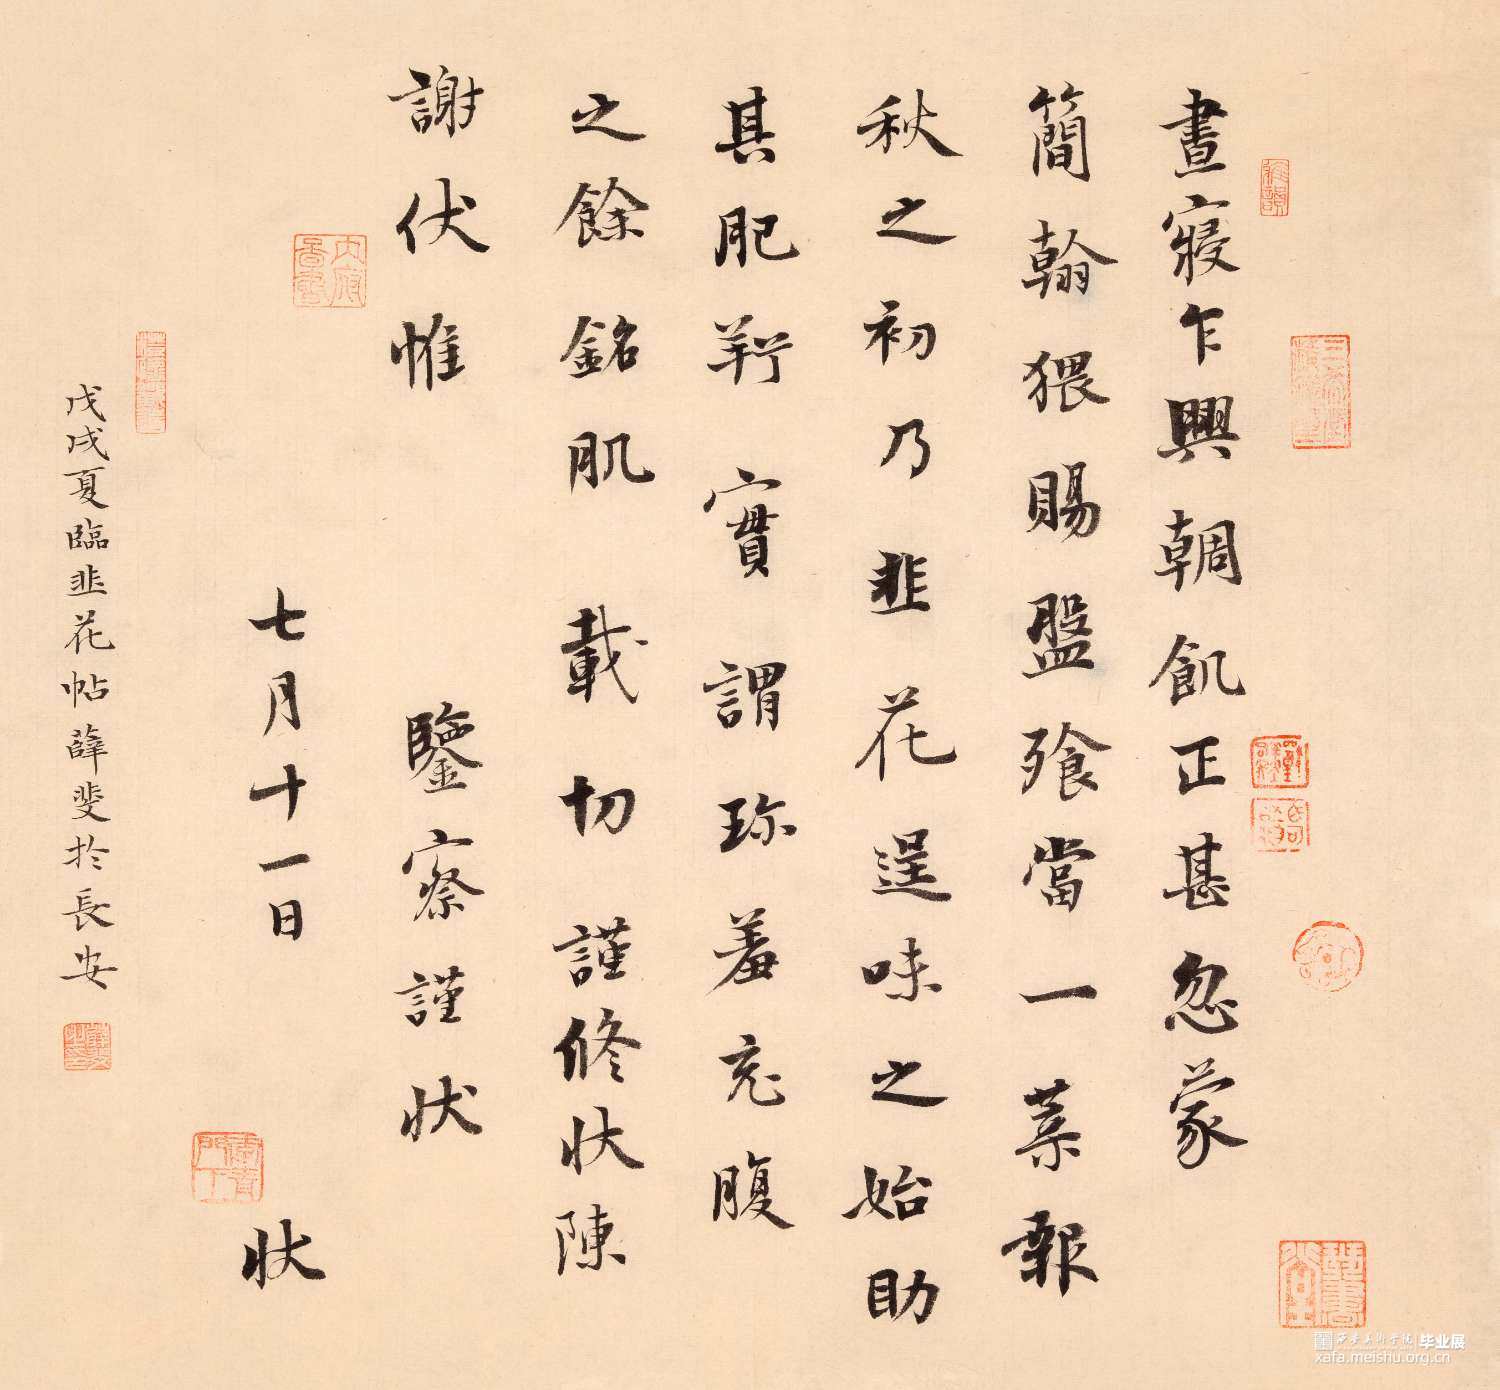 晝寢乍興朝飢正甚忽蒙
簡翰猥賜盤飧當一菜報
秋之初乃韭花逞味之始助
其肥羜實謂珍羞充腹
之餘銘肌載切謹修狀陳
謝伏惟鑒察謹狀
七月十一日狀
戊戌夏臨韭花帖薛斐於長安
西安美術學院毕业展
xafa.meishu.org.cn